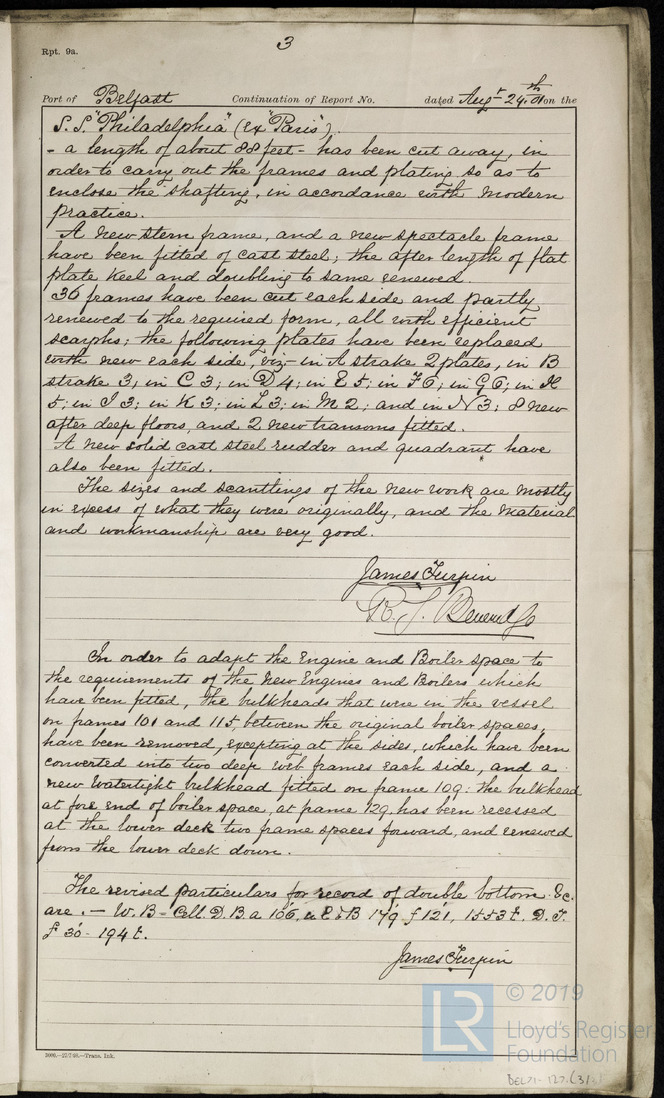 3
Rpt. 9a.
Port of Belfast Continuation of Report No. dated Augt 24th 01 on the
S.S. "Philadelphia" (ex "Paris").
- a length of about 88 feet - has been cut away, in
order to carry out the frames and plating so as to
enclose the shafting, in accordance with modern
practice.
A new stern frame, and a new spectacle frame
have been fitted of cast steel; the after length of flat
plate keel and doubling to same renewed.
36 frames have been cut each side and partly
renewed to the required form, all with efficient
scarphs; the following plates have been replaced
with new each side, viz:- in A strake 2 plates, in B
strake 3, in C 3; in D 4; in E 5; in F 6; in G 6; in H
5; in J 3; in K 3; in L 3; in M 2; and in N 3; 8 new
after deep floors, and 2 new transoms fitted.
A new solid cast steel rudder and quadrant have
also been fitted.
The sizes and scantlings of the new work are mostly
in excess of what they were originally, and the material
and workmanship are very good.
James Turpin
R. J. Beveridge
In order to adapt the Engine and Boiler space to
the requirements of the new Engines and Boilers which
have been fitted, the bulkheads that were in the vessel
on frames 101 and 115, between the original boiler spaces,
have been removed, excepting at the sides, which have been
converted into two deep web frames each side, and a
new watertight bulkhead fitted on frame 109: the bulkhead
at fore end of boiler space, at frame 129, has been recessed
at the lower deck two frame spaces forward, and renewed
from the lower deck down.
The revised particulars for record of double bottom &c.
are :- W.B = Cell. D.B. a 166, u E & B 179 f 121, 1553 t. D.T.
f 30 - 194 t.
James Turpin
3000.—27/7/98.—Trans. Ink.
LR
© 2019
Lloyd's Register
Foundation